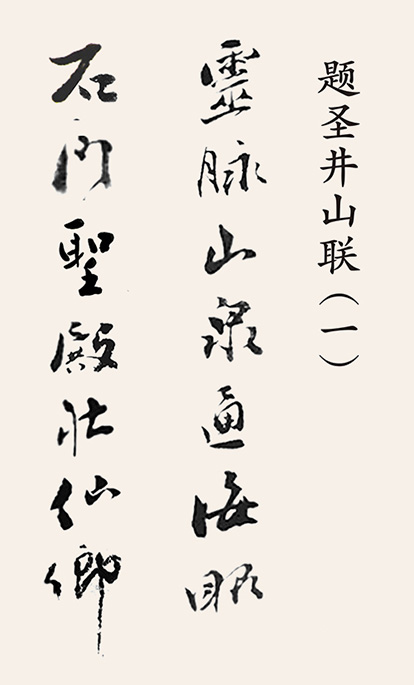 题圣井山联（一）
靈脉山泉通海眼
石門聖殿壮仙鄉